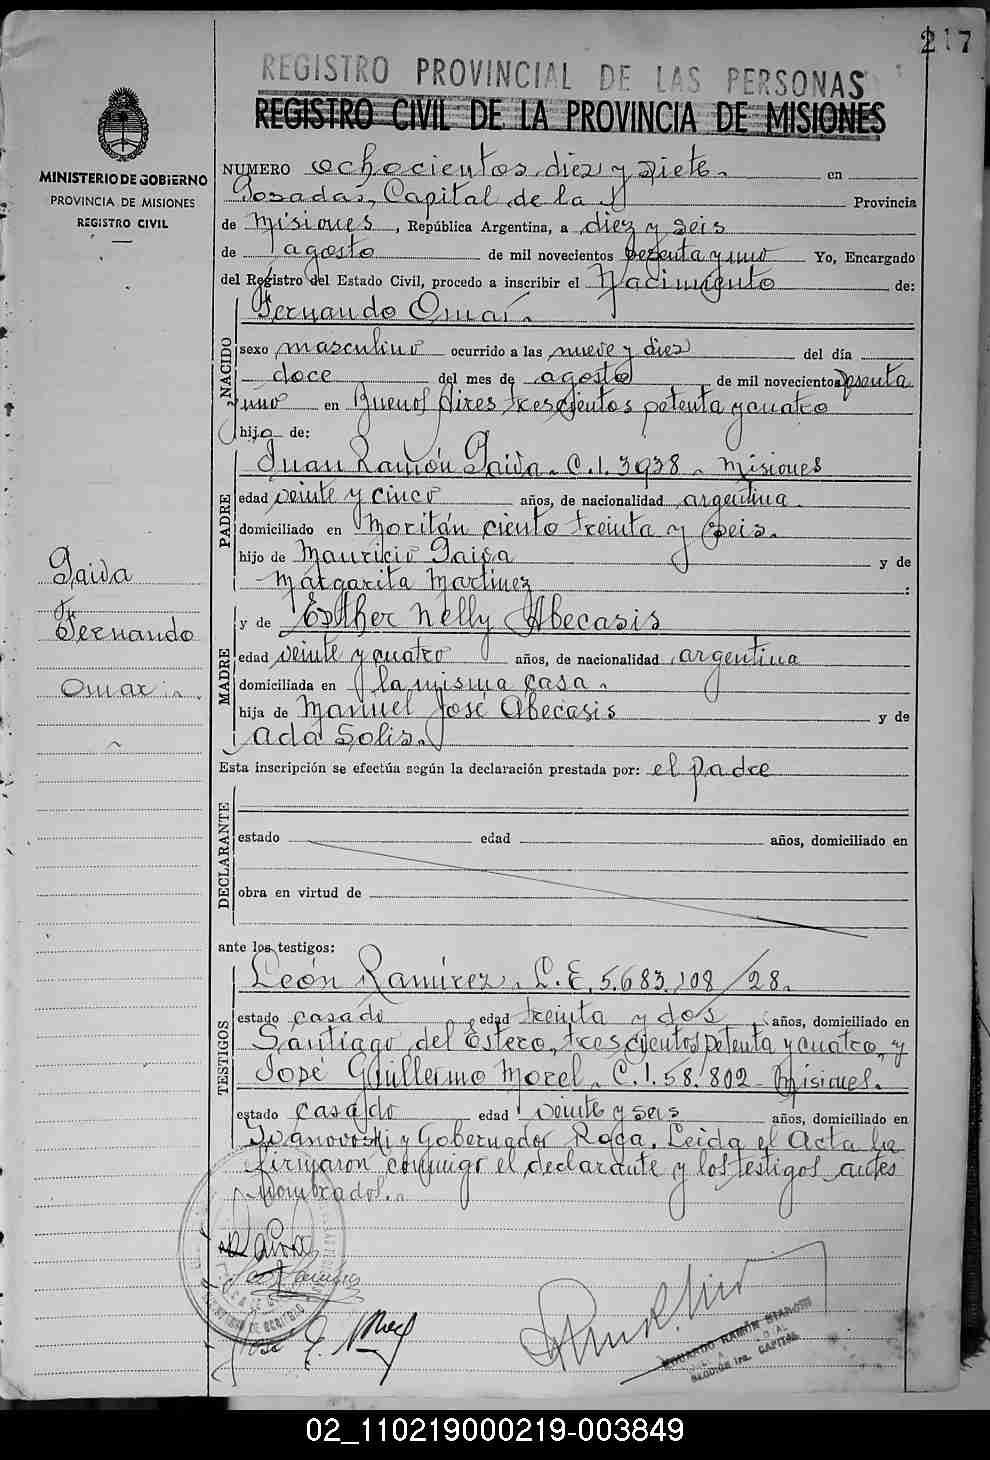 217
REGISTRO PROVINCIAL DE LAS PERSONAS
REGISTRO CIVIL DE LA PROVINCIA DE MISIONES
MINISTERIO DE GOBIERNO
PROVINCIA DE MISIONES
REGISTRO CIVIL
NUMERO ochocientos diez y siete en
Posadas, Capital de la Provincia
de Misiones, República Argentina, a diez y seis
de agosto de mil novecientos sesenta y uno Yo, Encargado
del Registro del Estado Civil, procedo a inscribir el Nacimiento de:
Fernando Omar
NACIDO
sexo masculino ocurrido a las nueve y diez del día
doce del mes de agosto de mil novecientos sesenta
y uno en Buenos Aires trescientos setenta y cuatro
hijo de:
PADRE
Juan Ramón Paiva C.I. 3938 Misiones
edad veinte y cinco años, de nacionalidad argentina
domiciliado en Moritán ciento treinta y seis
hijo de Mauricio Paiva y de
Margarita Martinez :
MADRE
y de Esther Nelly Abecasis
edad veinte y cuatro años, de nacionalidad argentina
domiciliada en la misma casa
hija de Manuel José Abecasis y de
Ada Solis
Paiva
Fernando
Omar
Esta inscripción se efectúa según la declaración prestada por: el padre
DECLARANTE
estado edad años, domiciliado en
obra en virtud de
ante los testigos:
TESTIGOS
León Ramirez L.E. 5.683.108/28.
estado casado edad treinta y dos años, domiciliado en
Santiago del Estero, trescientos setenta y cuatro, y
José Guillermo Morel C.I. 58.802 Misiones.
estado casado edad veinte y seis años, domiciliado en
Ivanovski y Gobernador Roca. Leida el Acta la
firmaron conmigo el declarante y los testigos antes
nombrados.
EDUARDO RAMÓN
SECCIÓN 1ra. CAPITAL
02_110219000219-003849